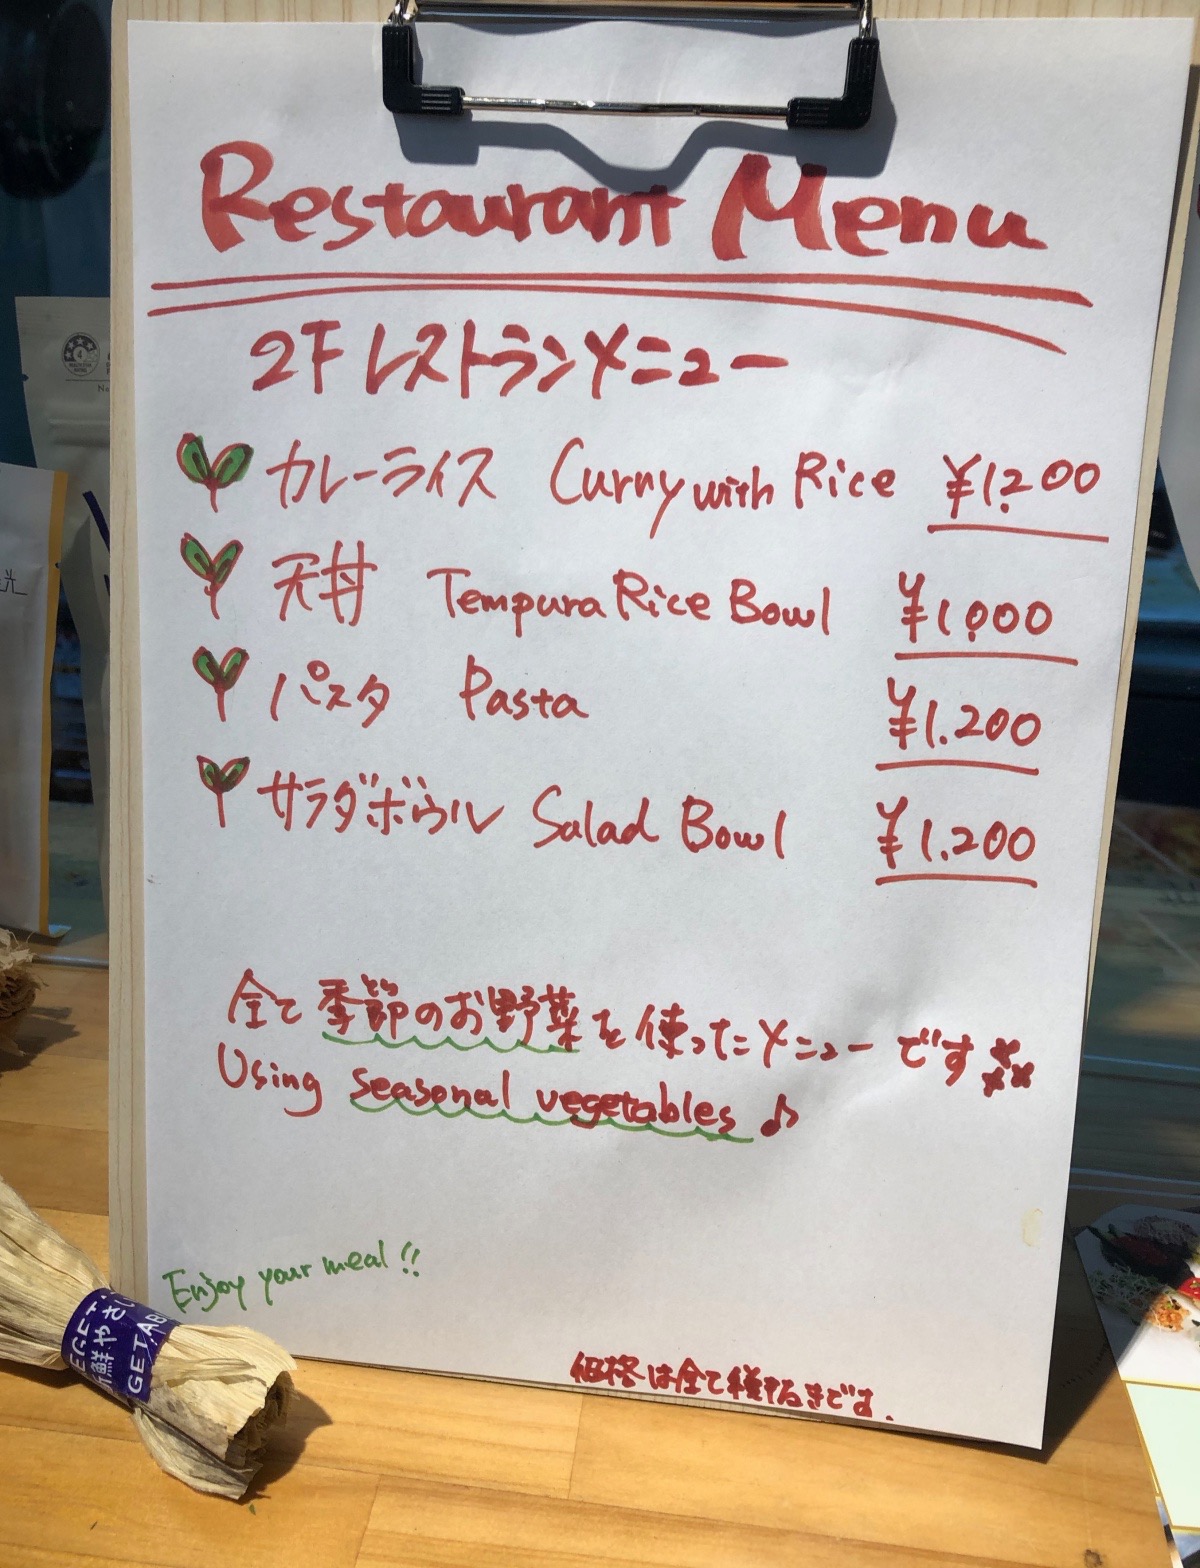 Restaurant Menu
2Fレストランメニュー
カレーライス Curry with Rice ¥1,200
天丼 Tempura Rice Bowl ¥1,000
パスタ Pasta ¥1.200
サラダボウル Salad Bowl ¥1.200
全て季節のお野菜を使ったメニューです
Using seasonal vegetables ♪
Enjoy your meal!!
価格は全て税抜きです.
鮮やさ
GETAB